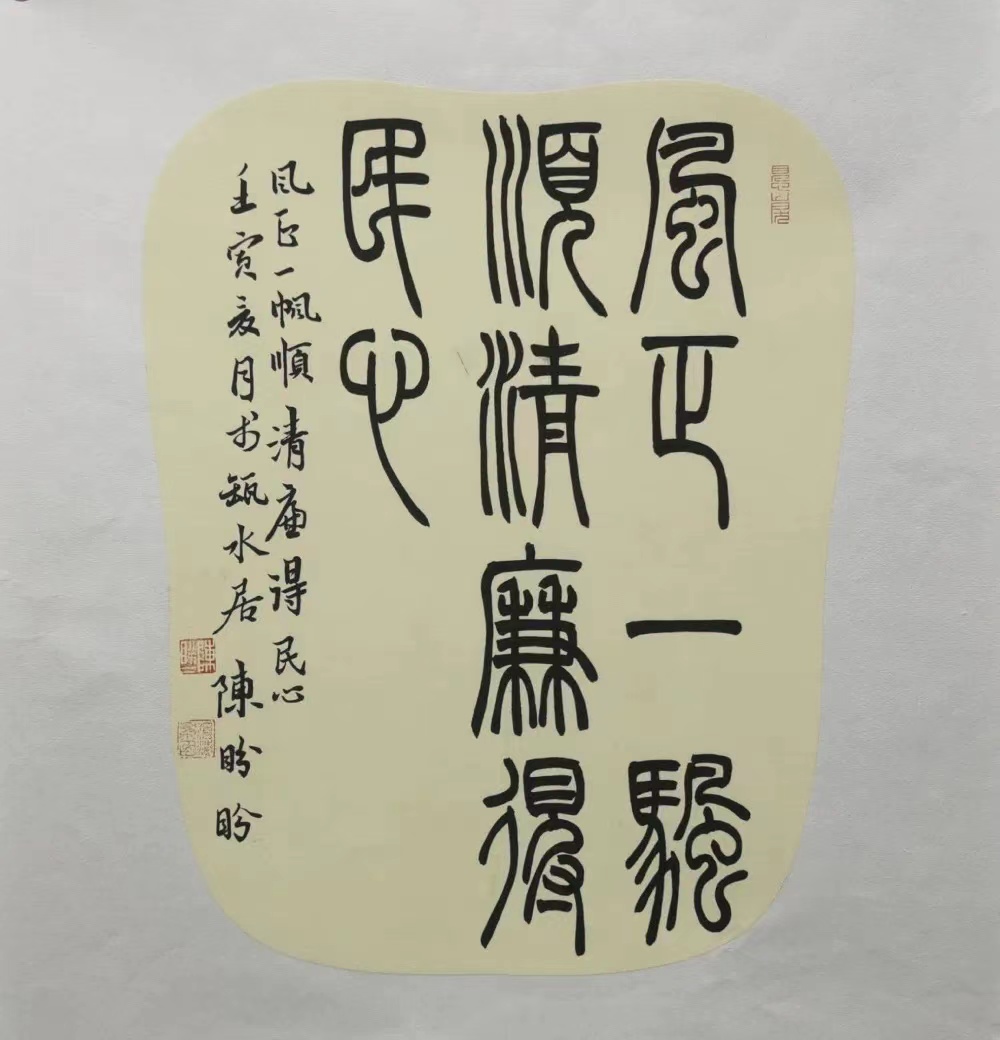 風正一颿
順清廉得
民心
風正一帆順清廉得民心
壬寅夏月於缻水居 陳盼盼